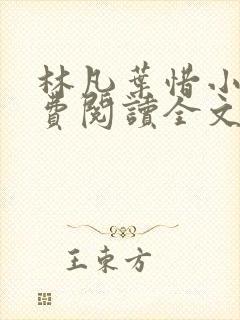 林凡葉惜小
費閱讀全文
王東方